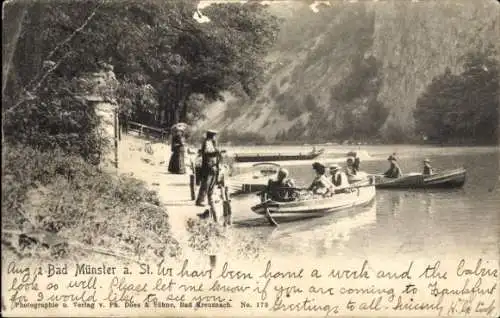 Aug 2 Bad Münster a. St. W. I have been home a week and the Cabin
look so well. Please let me know if you are coming to Frankfurt
for I would like to see you.
Photographie u. Verlag v. Ph. Does & Söhne, Bad Kreuznach. No. 173
Greetings to all. Sincerely